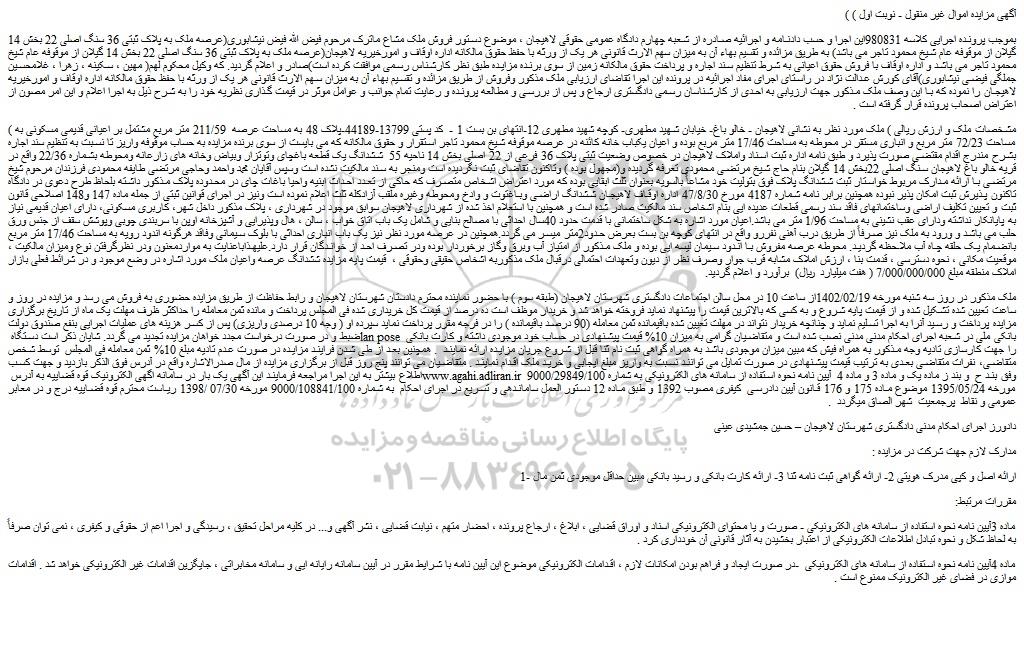 آگهی مزایده اموال غیر منقول - نوبت اول ) )
بموجب پرونده اجرایی کلاسه 980831این اجرا و حسب دادنامه و اجرائیه صادره از شعبه چهارم دادگاه عمومی حقوقی لاهیجان ، موضوع دستور فروش ملک مشاع ماترک مرحوم فیض الله فیض نیشابوری(عرصه ملک به پلاک ثبتی 36 سنگ اصلی 22 بخش 14
گیلان از موقوفه عام شیخ محمود تاجر می باشد) به طریق مزائده و تقسیم بهاء آن به میزان سهم الارث قانونی هر یک از ورثه با حفظ حقوق مالکانه اداره اوقاف و امورخیریه لاهیجان(عرصه ملک به پلاک ثبتی 36 سنگ اصلی 22 بخش 14 گیلان از موقوفه عام شیخ
محمود تاجر می باشد و اداره اوقاف با فروش حقوق اعیانی به شرط تنظیم سند اجاره و پرداخت حقوق مالکانه زمین از سوی برنده مزایده طبق نظر کارشناس رسمی موافقت کرده است)صادر و اعلام گردید. که وکیل محکوم لهم( مهین ، سکینه ، زهرا ، غلامحسین
جملگی فیضی نیشابوری)آقای کورش عدالت نژاد در راستای اجرای مفاد اجرائیه در پرونده این اجرا تقاضای ارزیابی ملک مذکور وفروش از طریق مزائده و تقسیم بهاء آن به میزان سهم الارث قانونی هر یک از ورثه با حفظ حقوق مالکانه اداره اوقاف و امورخیریه
لاهیجان را نموده که با این وصف ملک مذکور جهت ارزیابی به احدی از کارشناسان رسمی دادگستری ارجاع و پس از بررسی و مطالعه پرونده و رعایت تمام جوانب و عوامل موثر در قیمت گذاری نظریه خود را به شرح ذیل به اجرا اعلام و این امر مصون از
اعتراض اصحاب پرونده قرار گرفته است .
مشخصات ملک و ارزش ریالی ) ملک مورد نظر به نشانی لاهیجان - خالو باغ- خیابان شهید مطهری- کوچه شهید مطهری 12-انتهای بن بست 1 - کد پستی 13799-44189-پلاک 48 به مساحت عرصه 211/59 متر مربع مشتمل بر اعیانی قدیمی مسکونی به )
مساحت 72/23 متر مربع و انباری مستقر در محوطه به مساحت 17/46 متر مربع بوده و اعیان یکباب خانه کائنه در عرصه موقوفه شیخ محمود تاجر استقرار و حقوق مالکانه که می بایست از سوی برنده مزایده به حساب موقوفه واریز تا نسبت به تنظیم سند اجاره
بشرح مندرج اقدام مقتضی صورت پذیرد و طبق نامه اداره ثبت اسناد واملاک لاهیجان در خصوص وضعیت ثبتی پلاک 36 فرعی از 22 اصلی بخش 14 ناحیه 55 ششدانگ یک قطعه باغچای وتوتزار وبیاض وخانه های زارعانه ومحوطه بشماره 22/36 واقع در
قریه خالو باغ لاهیجان سنگ اصلی 22بخش 14 گیلان بنام حاج شیخ مرتضی محمودی تعرفه گردیده و(مجهول بوده ) وتاکنون تقاضای ثبت نگردیده است ومنجر به سند مالکیت نشده است وسپس آقایان محمد واحمد وحاجی مرتضی طایفه محمودی فرزندان مرحوم شیخ
مرتضی با آرائه مدارک مربوط خواستار ثبت ششدانگ پلاک فوق بتولیت خود مشاعا بالسویه بعنوان ثلث ابقایی بوده که مورد اعتراض اشخاص متصرف که حاکی از تعدد احداث ابنیه واحیا باغات چای در محدوده پلاک مذکور داشته بلحاظ طرح دعوی در دادگاه
تاکنون پذیرش ثبت امکان پذیر نبوده همچنین برابر نامه شماره 4187 مورخ 47/8/30 اداره اوقاف لاهیجان ششدانگ اراضی وباغوت و وادع ومحوطه وغیره ملقب آزادکله ثلث اعلام نموده است ونیز در اجرای قوانین ثبتی از جمله ماده 147 و148 اصلاحی قانون
ثبت و تعیین تکلیف اراضی وساختمانهای فاقد سند رسمی قطعات عدیده ایی بنام اشخاص سند مالکیت صادر شده است و ، همچنین با استعلام اخذ شده از شهرداری لاهیجان سوابق موجود در شهرداری ، پلاک مذکور داخل شهر، کاربری مسکونی، دارای اعیان قدیمی نیاز
به پایانکار نداشته ودارای عقب نشینی به مساحت 1/96 متر می باشد.اعیان مورد اشاره به شکل ساختمانی با قدمت حدود 40سال احداثی با مصالح بنایی و شامل یک باب اتاق خواب ، سالن ، هال وپذیرایی و آشپزخانه اوپن با سر بندی چوبی وپوشش سقف از جنس ورق
حلب می باشد و ورود به ملک نیز صرفاً از طریق درب آهنی نفررو واقع در انتهای کوچه بن بست بعرض حدود2متر میسر می گردد.همچنین در عرصه مورد نظر نیز یک باب انباری احداثی با بلوک سیمانی وفاقد هرگونه اندود رویه به مساحت 17/46 متر مربع
بانضمام یک حلقه چاه آب ملاحظه گردید. محوطه عرصه مفروش با اندود سیمان لیسه ایی بوده و ملک مذکور از امتیاز آب وبرق وگاز برخوردار بوده ودر تصرف احد از خواندگان قرار دارد.علیهذاباعنایت به مواردمعنون ودر نظرگرفتن نوع ومیزان مالکیت ،
موقعیت مکانی ، نحوه دسترسی ، قدمت بنا ، ارزش املاک مشابه قرب جوار وصرف نظر از دیون وتعهدات احتمالی درقبال ملک مذکوربه اشخاص حقیقی وحقوقی ، قیمت پایه مزایده ششدانگ عرصه واعیان ملک مورد اشاره در وضع موجود و در شرائط فعلی بازار
املاک منطقه مبلغ 7/000/000/000 ( هفت میلیارد ریال) برآورد و اعلام گردید.
ملک مذکور در روز سه شنبه مورخه 1402/02/19از ساعت 10 در محل سالن اجتماعات دادگستری شهرستان لاهیجان (طبقه سوم ) با حضور نماینده محترم دادستان شهرستان لاهیجان و رابط حفاظت از طریق مزایده حضوری به فروش می رسد و مزایده در روز و
ساعت تعیین شده تشکیل شده و از قیمت پایه شروع و به کسی که بالاترین قیمت را پیشنهاد نماید فروخته خواهد شد و خریدار موظف است ده درصد از قیمت کل خریداری شده فی المجلس پرداخت و مانده ثمن معامله را حداکثر ظرف مهلت یک ماه از تاریخ برگزاری
مزایده پرداخت و رسید آنرا به اجرا تسلیم نماید و چنانچه خریدار نتواند در مهلت تعیین شده باقیمانده ثمن معامله (90 درصد باقیمانده ) را در فرجه مقرر پرداخت نماید سپرده او ( وجه 10 درصدی واریزی) پس از کسر هزینه های عملیات اجرایی بنفع صندوق دولت
بانکی ملی در شعبه اجرای احکام مدنی مدنی نصب شده است و متقاضیان گرامی به میزان 10% قیمت پیشنهادی در حساب خود موجودی داشته و کارت بانکی lan poseضبط و در صورت درخواست مجدد خواهان مزایده تجدید می گردد. شایان ذکر است دستگاه
را جهت کارسازی تادیه وجه مذکور به همراه فیش که مبین میزان موجودی باشد به همراه گواهی ثبت نام ثنا قبل از شروع جریان مزایده ارائه نمایند. , همچنین بعد از طی شدن فرایند مزایده در صورت عدم تادیه مبلغ 10% ثمن معامله فی المجلس توسط شخص
متقاضی، نفرات متقاضی بعدی به ترتیب قیمت پیشنهادی در صورت تمایل می توانند نسبت به واریز مبلغ ایجابی و خرید ملک اقدام نمایند. متقاضیان می توانند پنج روز قبل از برگزاری مزایده از مال صدرالاشاره واقع در آدرس فوق الذکر بازدید و جهت کسب
وفق بند ح و بند ز ماده یک و ماده 3 و ماده 4 آیین نامه نحوه استفاده از سامانه های الکترونیکی به شماره 9000/29849/100 www.agahi.adliran.irاطلاع بیشتر به این اجرا مراجعه فرمایند این آگهی یک بار در سامانه آگهی الکترونیک قوه قضاییه به آدرس
مورخه 1395/05/24 موضوع ماده 175 و 176 قانون آیین دادرسی کیفری مصوب 1392 و طبق ماده 12 دستور العمل ساماندهی و تسریع در اجرای احکام به شماره 9000/108841/100 مورخه 07/30 /1398 ریاست محترم قوه قضاییه درج و در معابر
عمومی و نقاط پرجمعیت شهر الصاق میگردد .
دادورز اجرای احکام مدنی دادگستری شهرستان لاهیجان – حسین جمشیدی عینی
مدارک لازم جهت شرکت در مزایده :
ارائه اصل و کپی مدرک هویتی 2- ارائه گواهی ثبت نامه ثنا 3- ارائه کارت بانکی و رسید بانکی مبین حداقل موجودی ثمن مال -1
مقررات مرتبط:
ماده 3آیین نامه نحوه استفاده از سامانه های الکترونیکی - صورت و یا محتوای الکترونیکی اسناد و اوراق قضایی ، ابلاغ ، ارجاع پرونده ، احضار متهم ، نیابت قضایی ، نشر آگهی و... در کلیه مراحل تحقیق ، رسیدگی و اجرا اعم از حقوقی و کیفری ، نمی توان صرفاً
به لحاظ شکل و نحوه تبادل اطلاعات الکترونیکی از اعتبار بخشیدن به آثار قانونی آن خودداری کرد .
ماده 4آیین نامه نحوه استفاده از سامانه های الکترونیکی ..در صورت ایجاد و فراهم بودن امکانات لازم ، اقدامات الکترونیکی موضوع این آیین نامه با شرایط مقرر در آیین سامانه رایانه ایی و سامانه مخابراتی ، جایگزین اقدامات غیر الکترونیکی خواهد شد . اقدامات
موازی در فضای غیر الکترونیک ممنوع است .
پایگاه اطلاع رسانی مناقصه و مزایده
۰۲۱-۸۸۳۴۹۶۷۰-۵